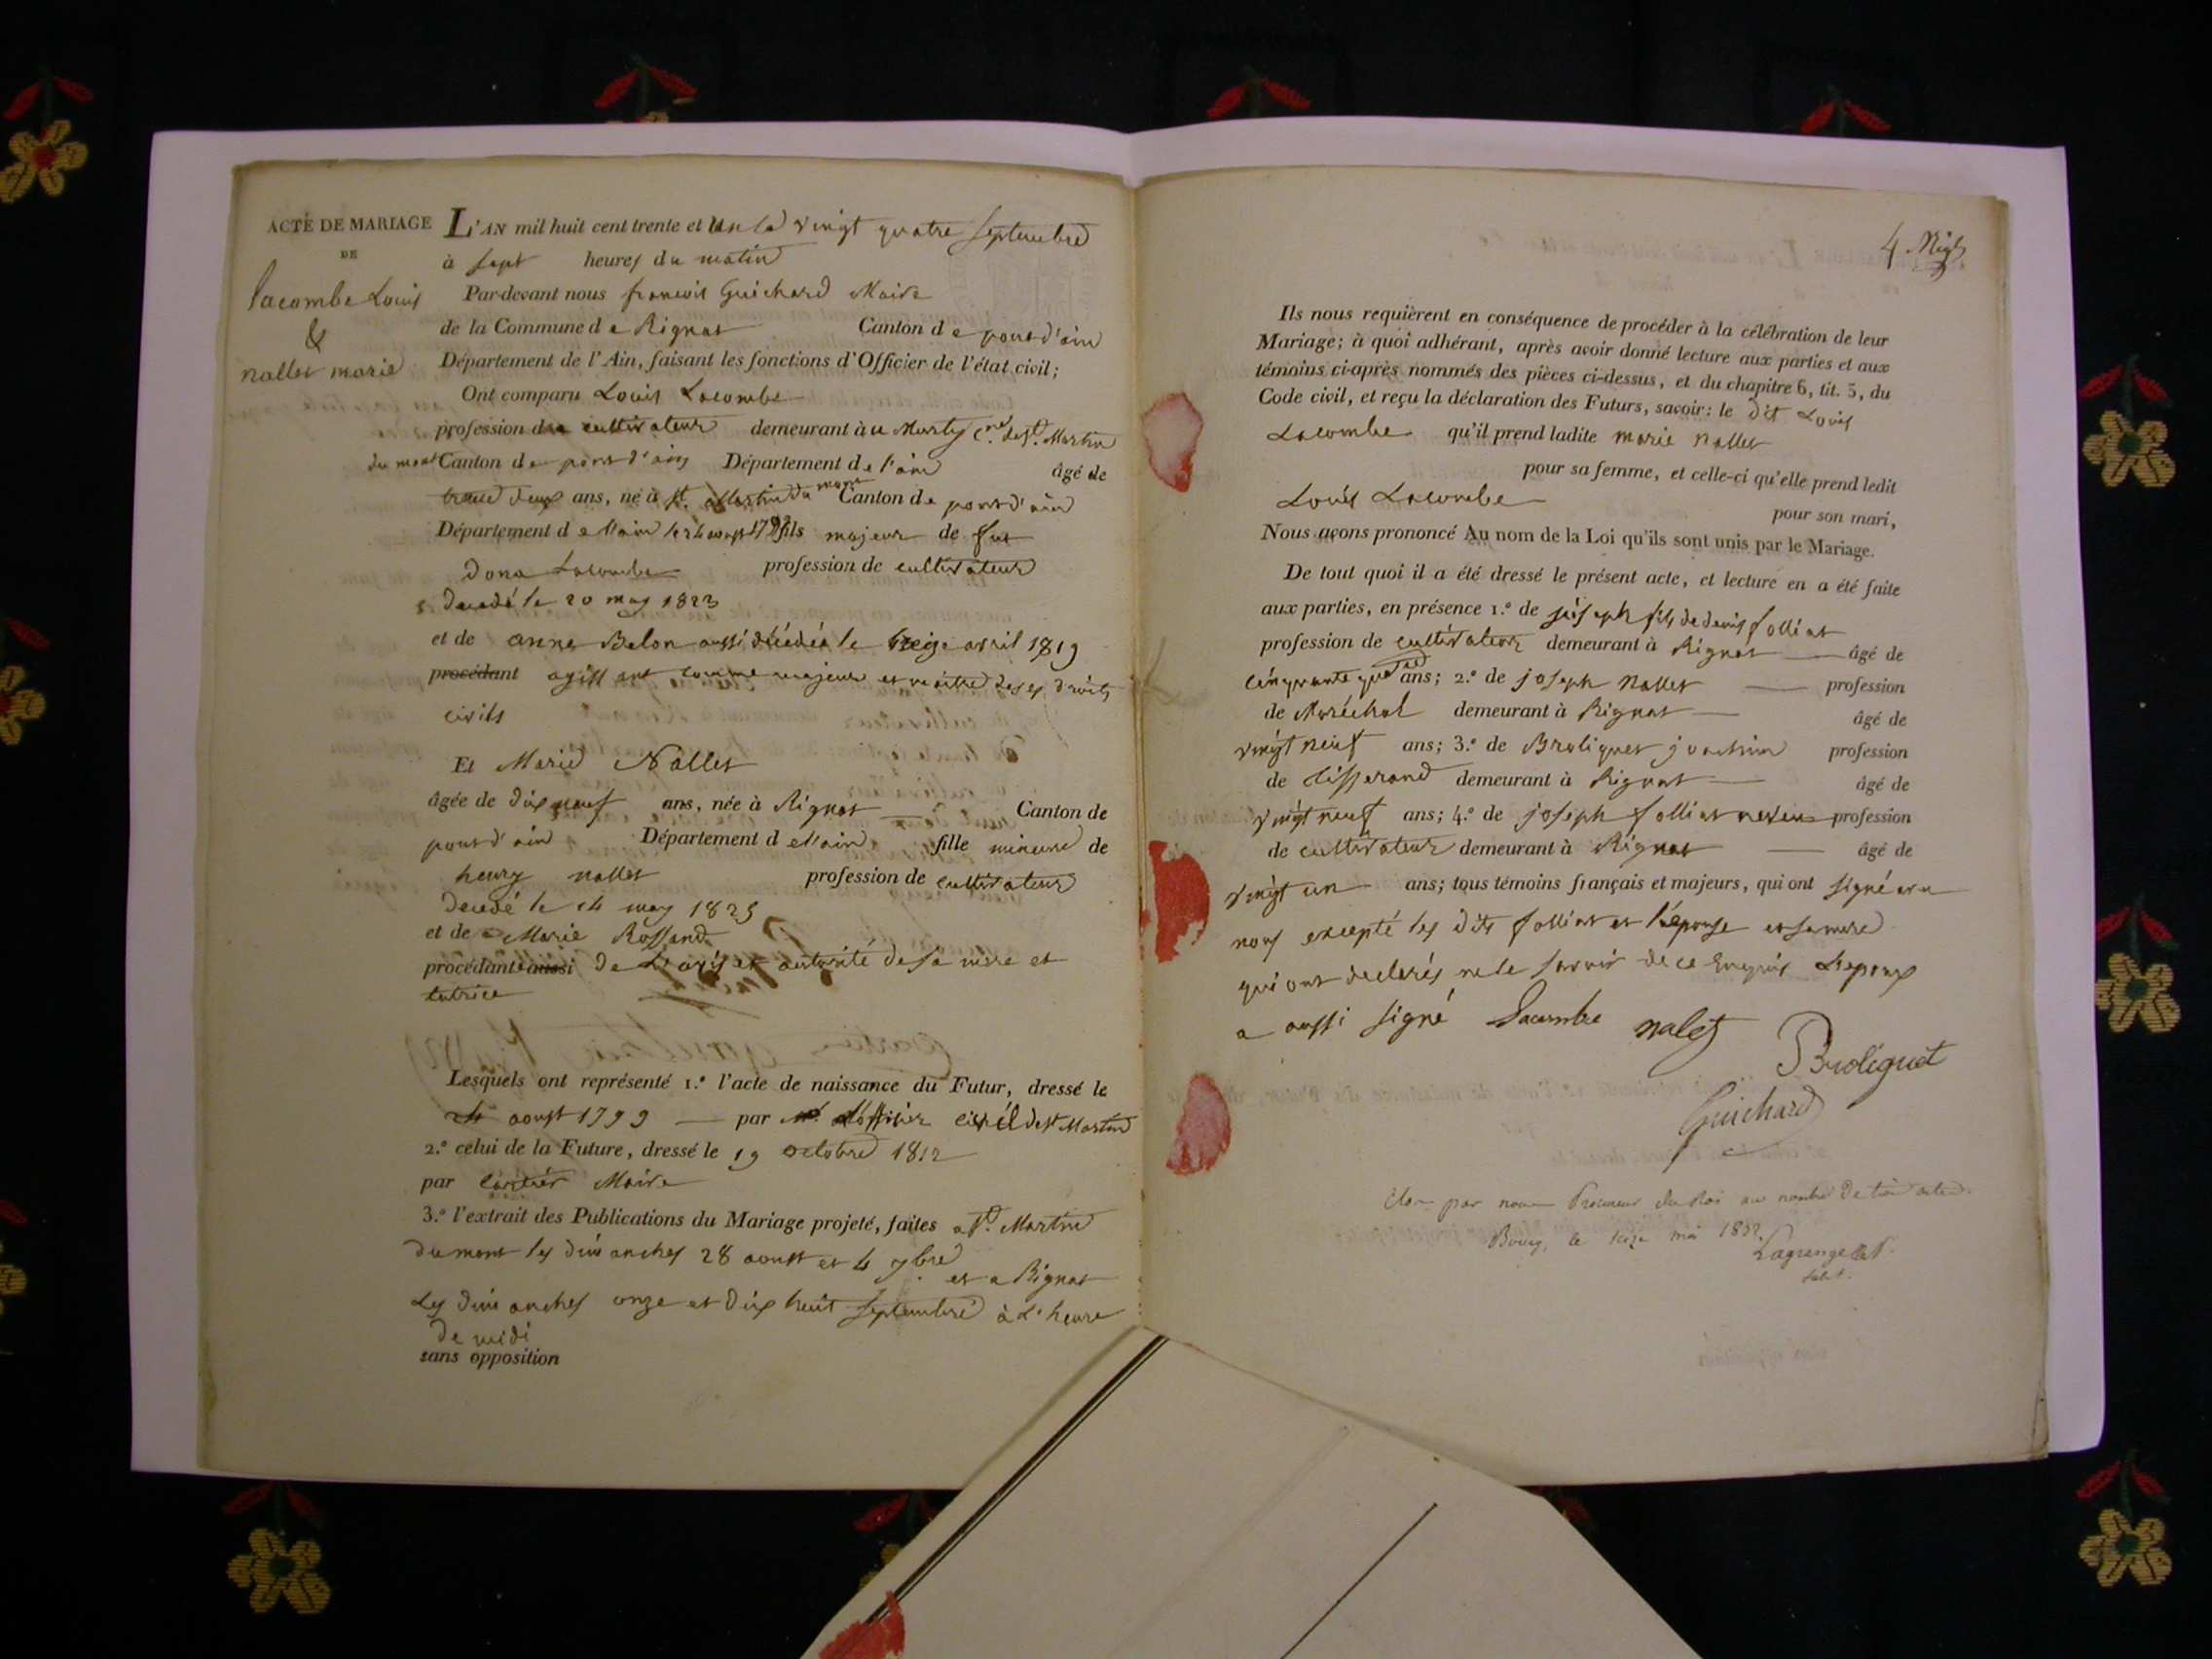 ACTE DE MARIAGE
DE
lacombe Louis
&
nallet marie
L'AN mil huit cent trente et un le vingt quatre septembre
à sept heures du matin
Par-devant nous francois Guichard Maire
de la Commune de Rignat Canton de pont d'ain
Département de l'Ain, faisant les fonctions d'Officier de l'état civil;
Ont comparu Louis Lacombe
profession de cultivateur demeurant à Martin
du mont Canton de pont d'ain Département de l'ain âgé de
trente deux ans, né à st. Martin du mont Canton de pont d'ain
Département de l'ain le aoust fils majeur de feu
Lacombe profession de cultivateur
decedé le 20 may 1823
et de anne Belon aussi décédée le treize avril 1819
procédant agissant comme majeur et maitre de ses droits
civils
Et Marie Nallet
âgée de dix neuf ans, née à Rignat Canton de
pont d'ain Département de l'ain fille mineure de
henry nallet profession de cultivateur
decedé le 14 may 1825
et de Marie Rossand
procédante aussi de L'avis et autorité de sa mere et
tutrice
Lesquels ont représenté 1.º l'acte de naissance du Futur, dressé le
aoust 1799 par l'officier civil de st Martin
2.º celui de la Future, dressé le 19 octobre 1812
par Maire
3.º l'extrait des Publications du Mariage projeté, faites a st. Martin
du mont les dimanches 28 aoust et 4 7bre
et a Rignat
Les dimanches onze et dix huit septembre à L'heure
de midi
sans opposition
4
Ils nous requièrent en conséquence de procéder à la célébration de leur
Mariage; à quoi adhérant, après avoir donné lecture aux parties et aux
témoins ci-après nommés des pièces ci-dessus, et du chapitre 6, tit. 5, du
Code civil, et reçu la déclaration des Futurs, savoir: le dit Louis
Lacombe qu'il prend ladite marie nallet
pour sa femme, et celle-ci qu'elle prend ledit
Louis Lacombe
pour son mari,
Nous avons prononcé Au nom de la Loi qu'ils sont unis par le Mariage.
De tout quoi il a été dressé le présent acte, et lecture en a été faite
aux parties, en présence 1.º de joseph fils de denis folliat
profession de cultivateur demeurant à Rignat âgé de
cinquante ans; 2.º de joseph Nallet profession
de Maréchal demeurant à Rignat âgé de
vingt neuf ans; 3.º de Broliquet joachim profession
de tisserand demeurant à Rignat âgé de
vingt neuf ans; 4.º de joseph folliat neveu profession
de cultivateur demeurant à Rignat âgé de
vingt un ans; tous témoins français et majeurs, qui ont signé avec
nous excepté les dits folliat et l'épouse et sa mere
qui ont declarés ne le savoir de ce enquis L'epoux
a aussi signé Lacombe nalet
Broliquet
Guichard
Clos par nous Procureur du Roi au nombre de trois actes.
Bourg, le seize mai 1832.
Lagrange
subst.